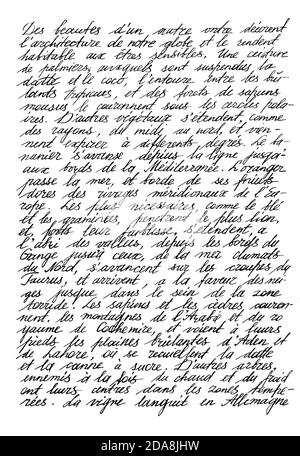 Des beautes d'un autre ordre décorent
l'architecture de notre globe et le rendent
habitable aux êtres sensibles. Une ceinture
de palmiers, auxquels sont suspendus la
datte et le coco, l'entoure entre les brû-
lants tropiques, et des forêts de sapins
mousus le couronnent sous les cercles pola-
ires. D'autres végétaux s'étendent, comme
des rayons, du midi au nord, et vien-
nent expirer à différents degrés. Le ba-
nanier s'avance depuis la ligne jusqu'
aux bords de la Méditerranée. L'oranger
passe la mer, et borde de ses fruits
dorés des rivages méridionaux de l'Eu-
rope. Les plus nécessaires, comme le blé
et les graminées, pénètrent le plus loin,
et, forts de leur faiblesse, s'étendent, a
l'abri des vallées, depuis les bords du
Gange jusqu'à ceux de la mer
du Nord, s'avancent sur les croupes du
Taurus, et arrivent, a la faveur des nei-
ges jusque dans le sein de la zone
torride. Les sapins et les cèdres couron-
nent les montagnes de l'Arabie et du ro-
yaume de Cachemire, et voient à leurs
pieds les plaines brûlantes d'Aden et
de Lahore, où se recueillent la datte
et la canne à sucre. D'autres arbres,
ennemis à la fois du chaud et du froid
ont leurs centres dans les zones tempe-
rées. La vigne languit en Allemagne
alamy
Image ID: 2DA8JHW
www.alamy.com